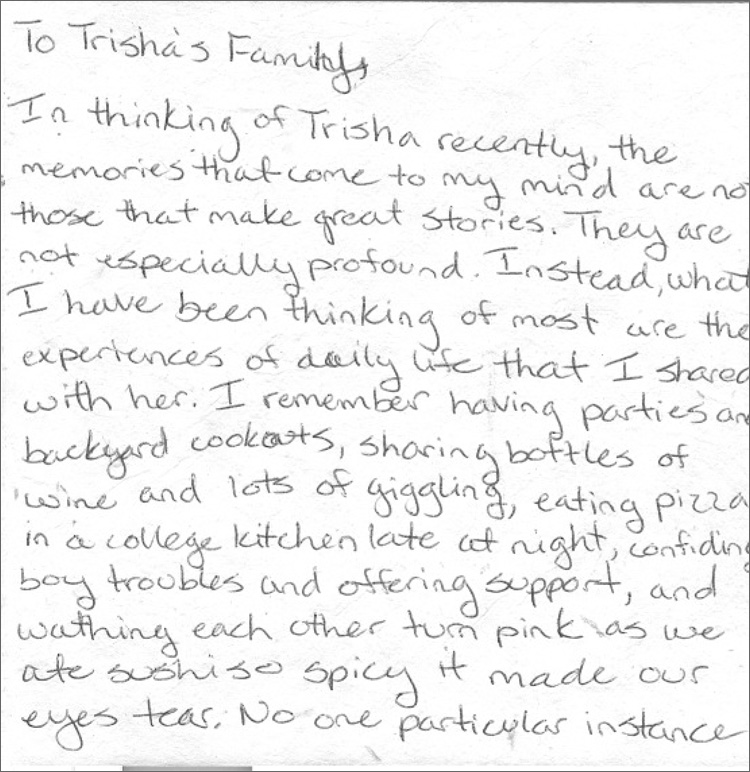 To Trisha's Family,
In thinking of Trisha recently, the
memories that come to my mind are no
those that make great stories. They are
not especially profound. Instead, what
I have been thinking of most are the
experiences of daily life that I shared
with her. I remember having parties an
backyard cookouts, sharing bottles of
wine and lots of giggling, eating pizza
in a college kitchen late at night, confiding
boy troubles and offering support, and
wathing each other turn pink as we
ate sushi so spicy it made our
eyes tear. No one particular instance